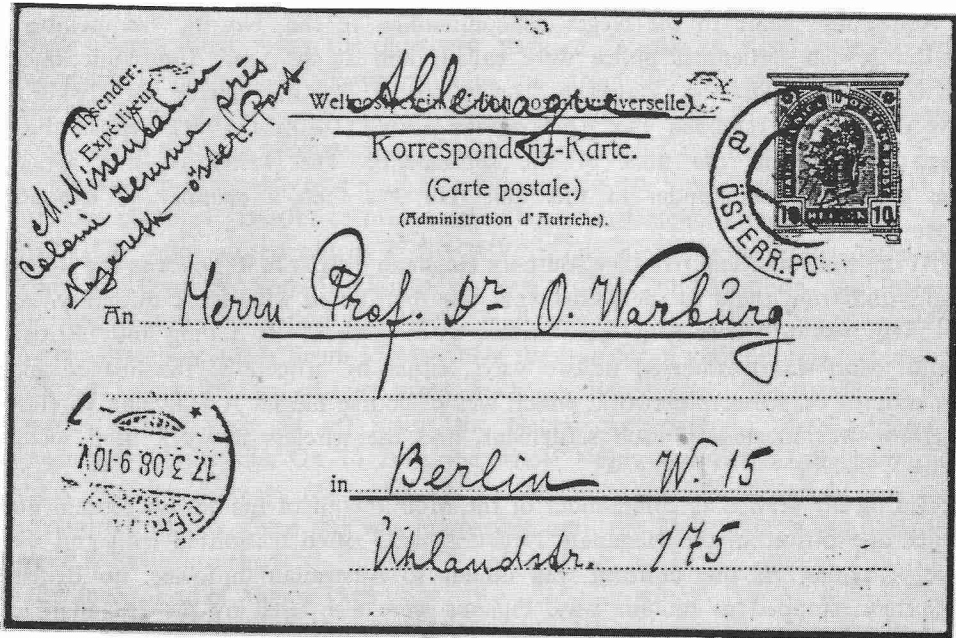 Absender:
Expéditeur
M. Nissenbaum
Colonie Jemma près
Nazareth — österr. Post
Allemagne
Weltpostverein (Union postale universelle).
Korrespondenz-Karte.
(Carte postale.)
(Administration d'Autriche).
10
10 10
a
ÖSTERR. PO
An Herrn Prof. Dr O. Warburg
in Berlin W. 15
Uhlandstr. 175
17.3.08.9-10V
BERLIN